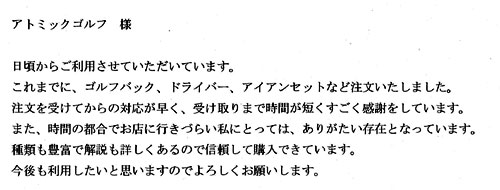 アトミックゴルフ　様
日頃からご利用させていただいています。
これまでに、ゴルフバック、ドライバー、アイアンセットなど注文いたしました。
注文を受けてからの対応が早く、受け取りまで時間が短くすごく感謝をしています。
また、時間の都合でお店に行きづらい私にとっては、ありがたい存在となっています。
種類も豊富で解説も詳しくあるので信頼して購入できています。
今後も利用したいと思いますのでよろしくお願いします。